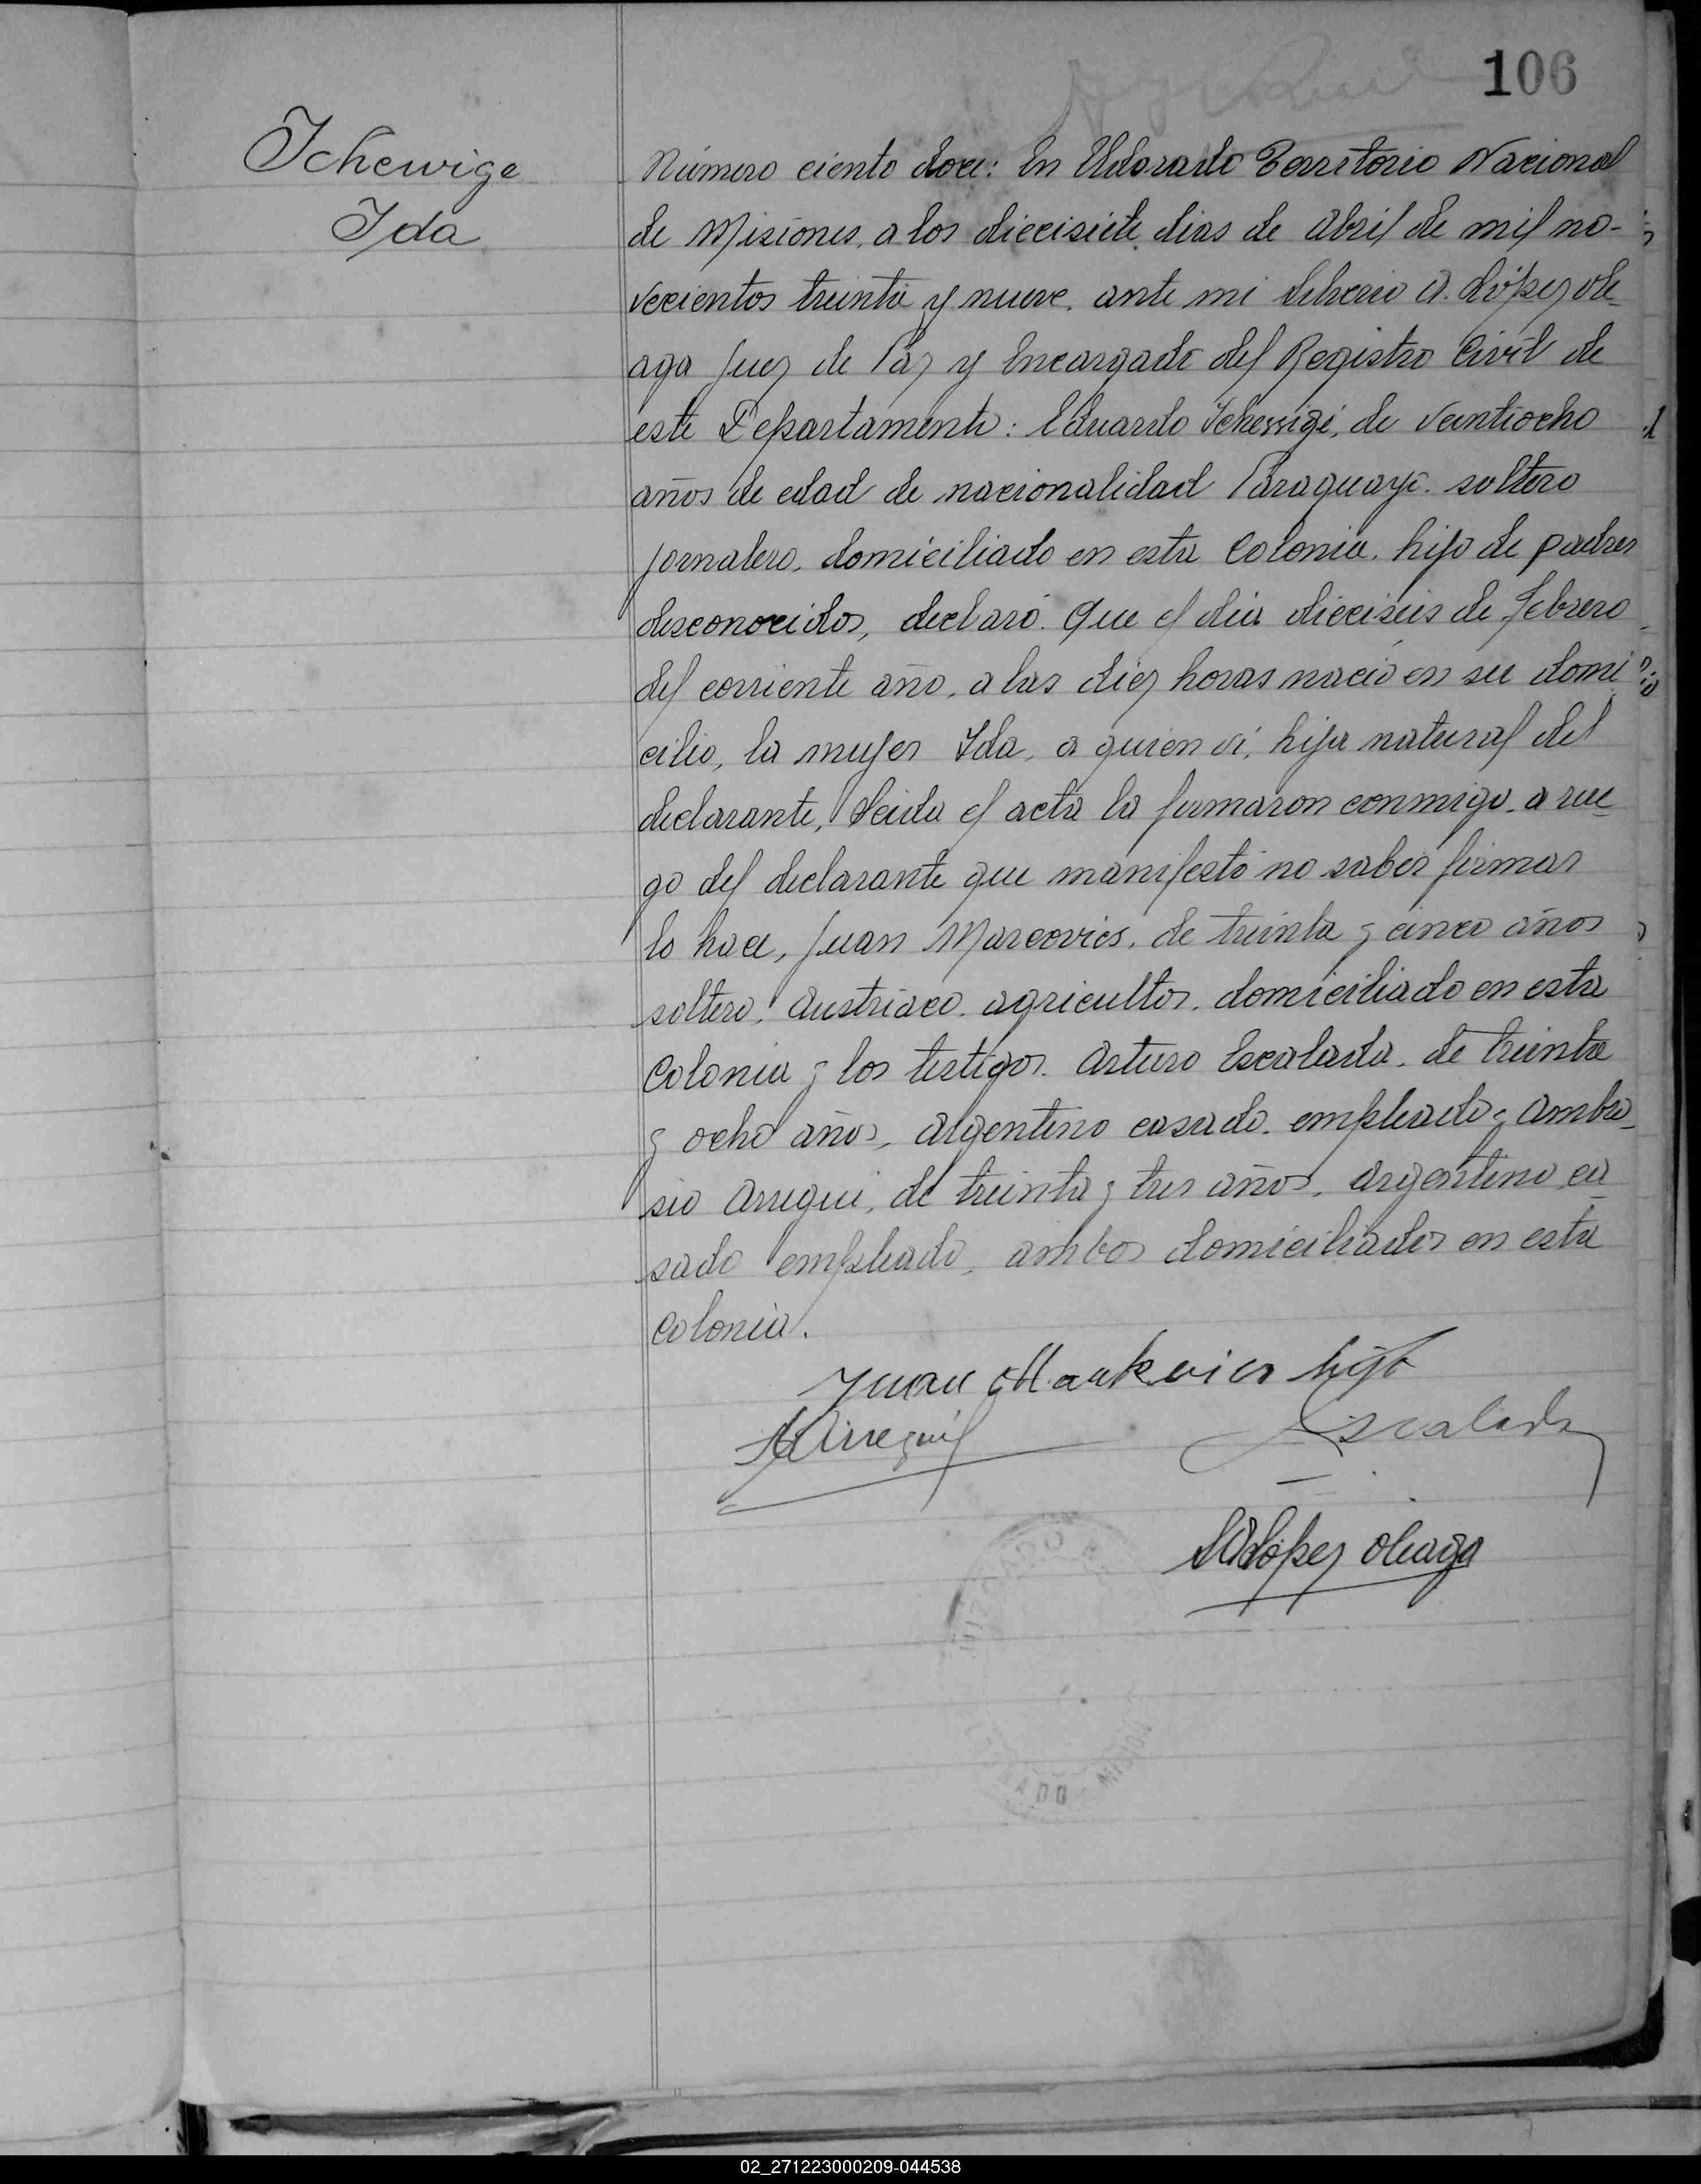 106
Ichewige
Ida
Número ciento doce: En Eldorado Territorio Nacional
de Misiones, a los diecisiete dias de Abril de mil no-
vecientos treinta y nueve, ante mi Silverio A. López ole-
aga Juez de Paz y Encargado del Registro Civil de
este Departamento: Eduardo Ichewige, de veintiocho
años de edad de nacionalidad Paraguayo. soltero
jornalero, domiciliado en esta Colonia, hijo de padres
desconocidos, declaró. Que el dia dieciseis de Febrero
del corriente año, a las diez horas nació en su domi
cilio, la mujer Ida, a quien vi, hija natural del
declarante, Leida el acta la firmaron conmigo, a rue-
go del declarante que manifestó no saber firmar
lo hace, Juan Marcovics, de treinta y cinco años
soltero, Austriaco, agricultor, domiciliado en esta
Colonia y los testigos. Arturo Escalada, de treinta
y ocho años, Argentino casado, empleado y Ambro-
sio Arregui, de treinta y tres años, Argentino, ca-
sado empleado, ambos domiciliados en esta
Colonia.
Juan Markovics hijo
AArregui Escalada
SALópez Oleaga
02_271223000209-044538